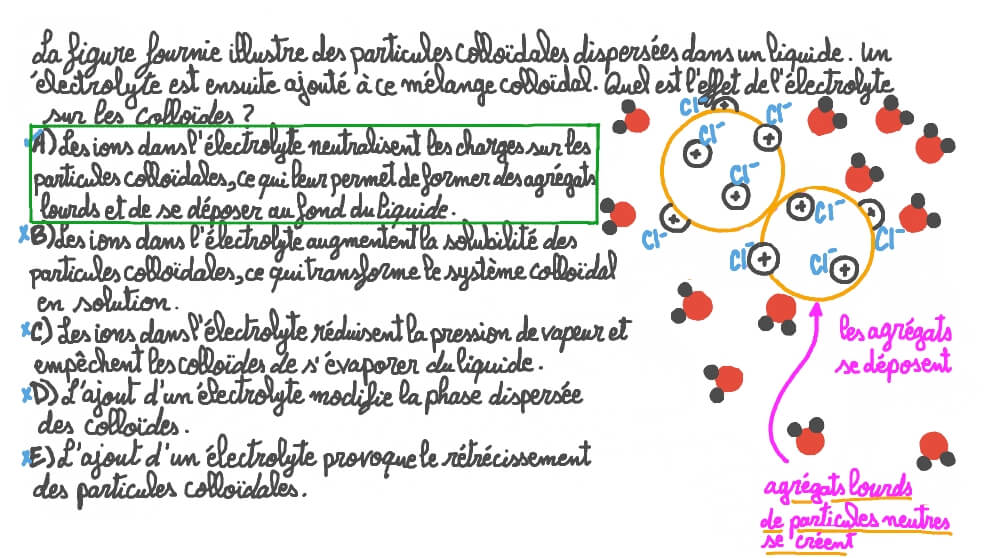 La figure fournie illustre des particules colloïdales dispersées dans un liquide. Un
électrolyte est ensuite ajouté à ce mélange colloïdal. Quel est l'effet de l'électrolyte
sur les colloïdes ?
A) Les ions dans l'électrolyte neutralisent les charges sur les
particules colloïdales, ce qui leur permet de former des agrégats
lourds et de se déposer au fond du liquide.
B) Les ions dans l'électrolyte augmentent la solubilité des
particules colloïdales, ce qui transforme le système colloïdal
en solution.
C) Les ions dans l'électrolyte réduisent la pression de vapeur et
empêchent les colloïdes de s'évaporer du liquide.
D) L'ajout d'un électrolyte modifie la phase dispersée
des colloïdes.
E) L'ajout d'un électrolyte provoque le rétrécissement
des particules colloïdales.
Cl⁻
Cl⁻
Cl⁻
Cl⁻
Cl⁻
Cl⁻
Cl⁻
Cl⁻
Cl⁻
+
+
+
+
+
+
+
+
+
les agrégats
se déposent
agrégats lourds
de particules neutres
se créent